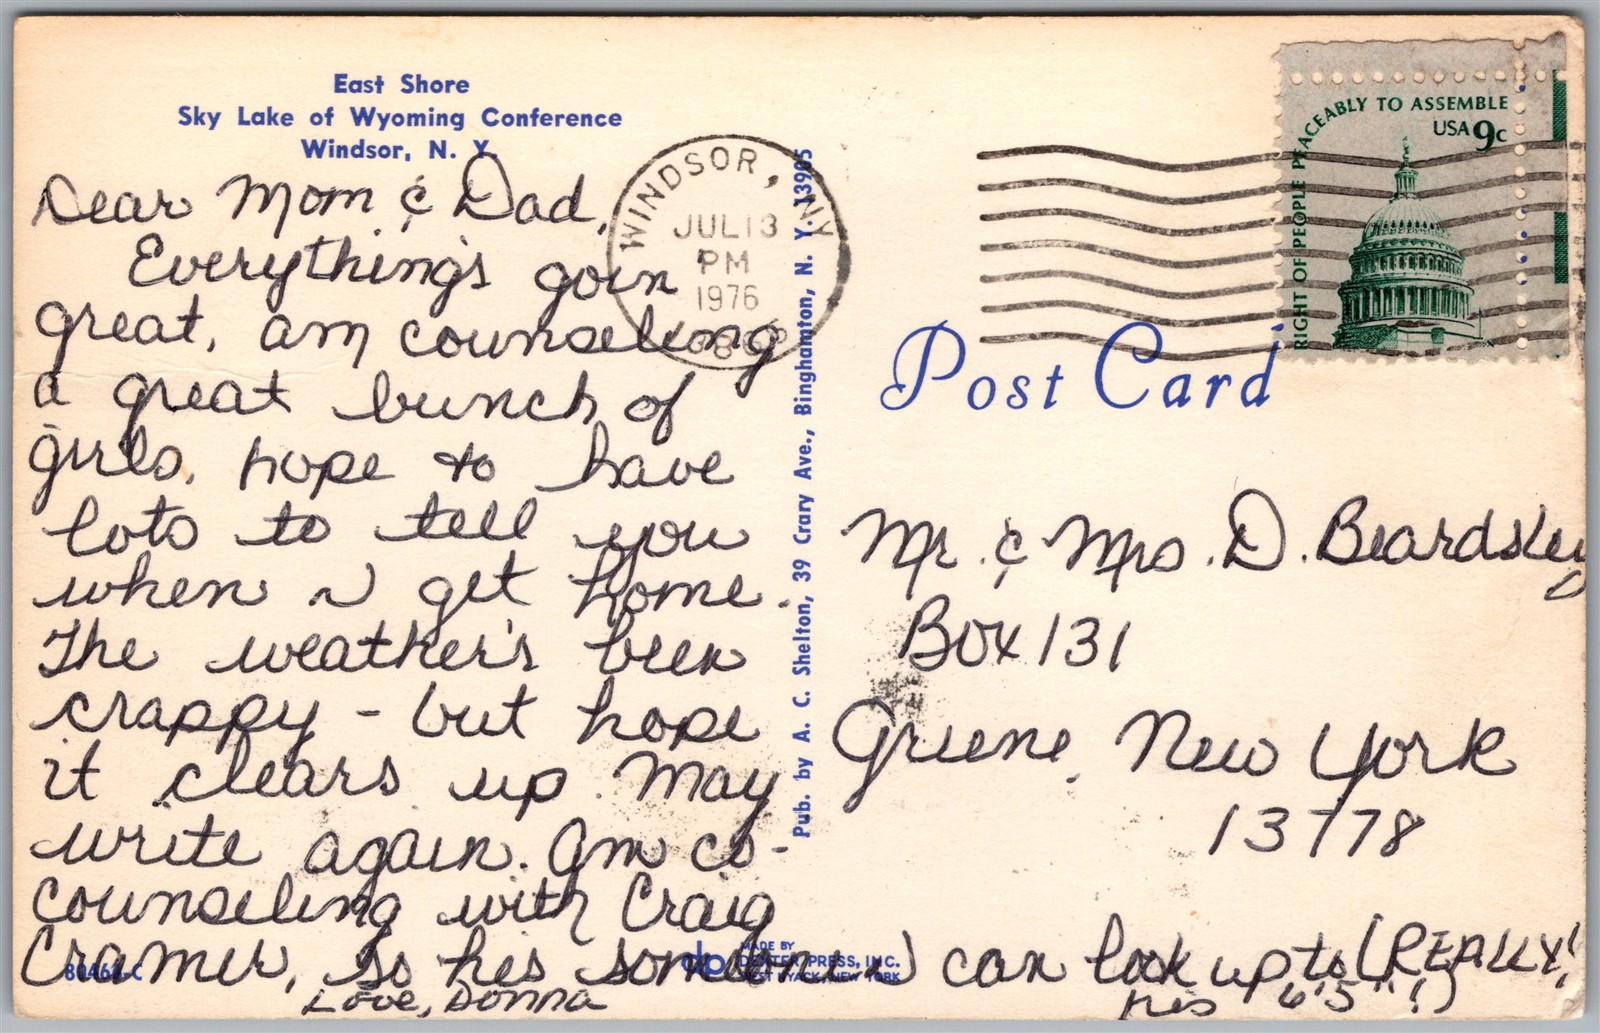 East Shore
Sky Lake of Wyoming Conference
Windsor, N. Y.
Dear Mom & Dad,
Everything's goin
great, am counseling
a great bunch of
girls, hope to have
lots to tell you
when I get home.
The weather's been
crappy - but hope
it clears up. May
write again. Am co-
counseling with Craig
Cramer, so hes someone I can look up to (REALLY!
his 6'5"!)
Love, Donna
80468-C
MADE BY
DEXTER PRESS, INC.
WEST NYACK, NEW YORK
Pub. by A. C. Shelton, 39 Crary Ave., Binghamton, N. Y. 13905
WINDSOR, NY
JUL 13
PM
1976
RIGHT OF PEOPLE PEACEABLY TO ASSEMBLE
USA 9c
Post Card
Mr. & Mrs. D. Beardsley
Box 131
Greene, New York
13778